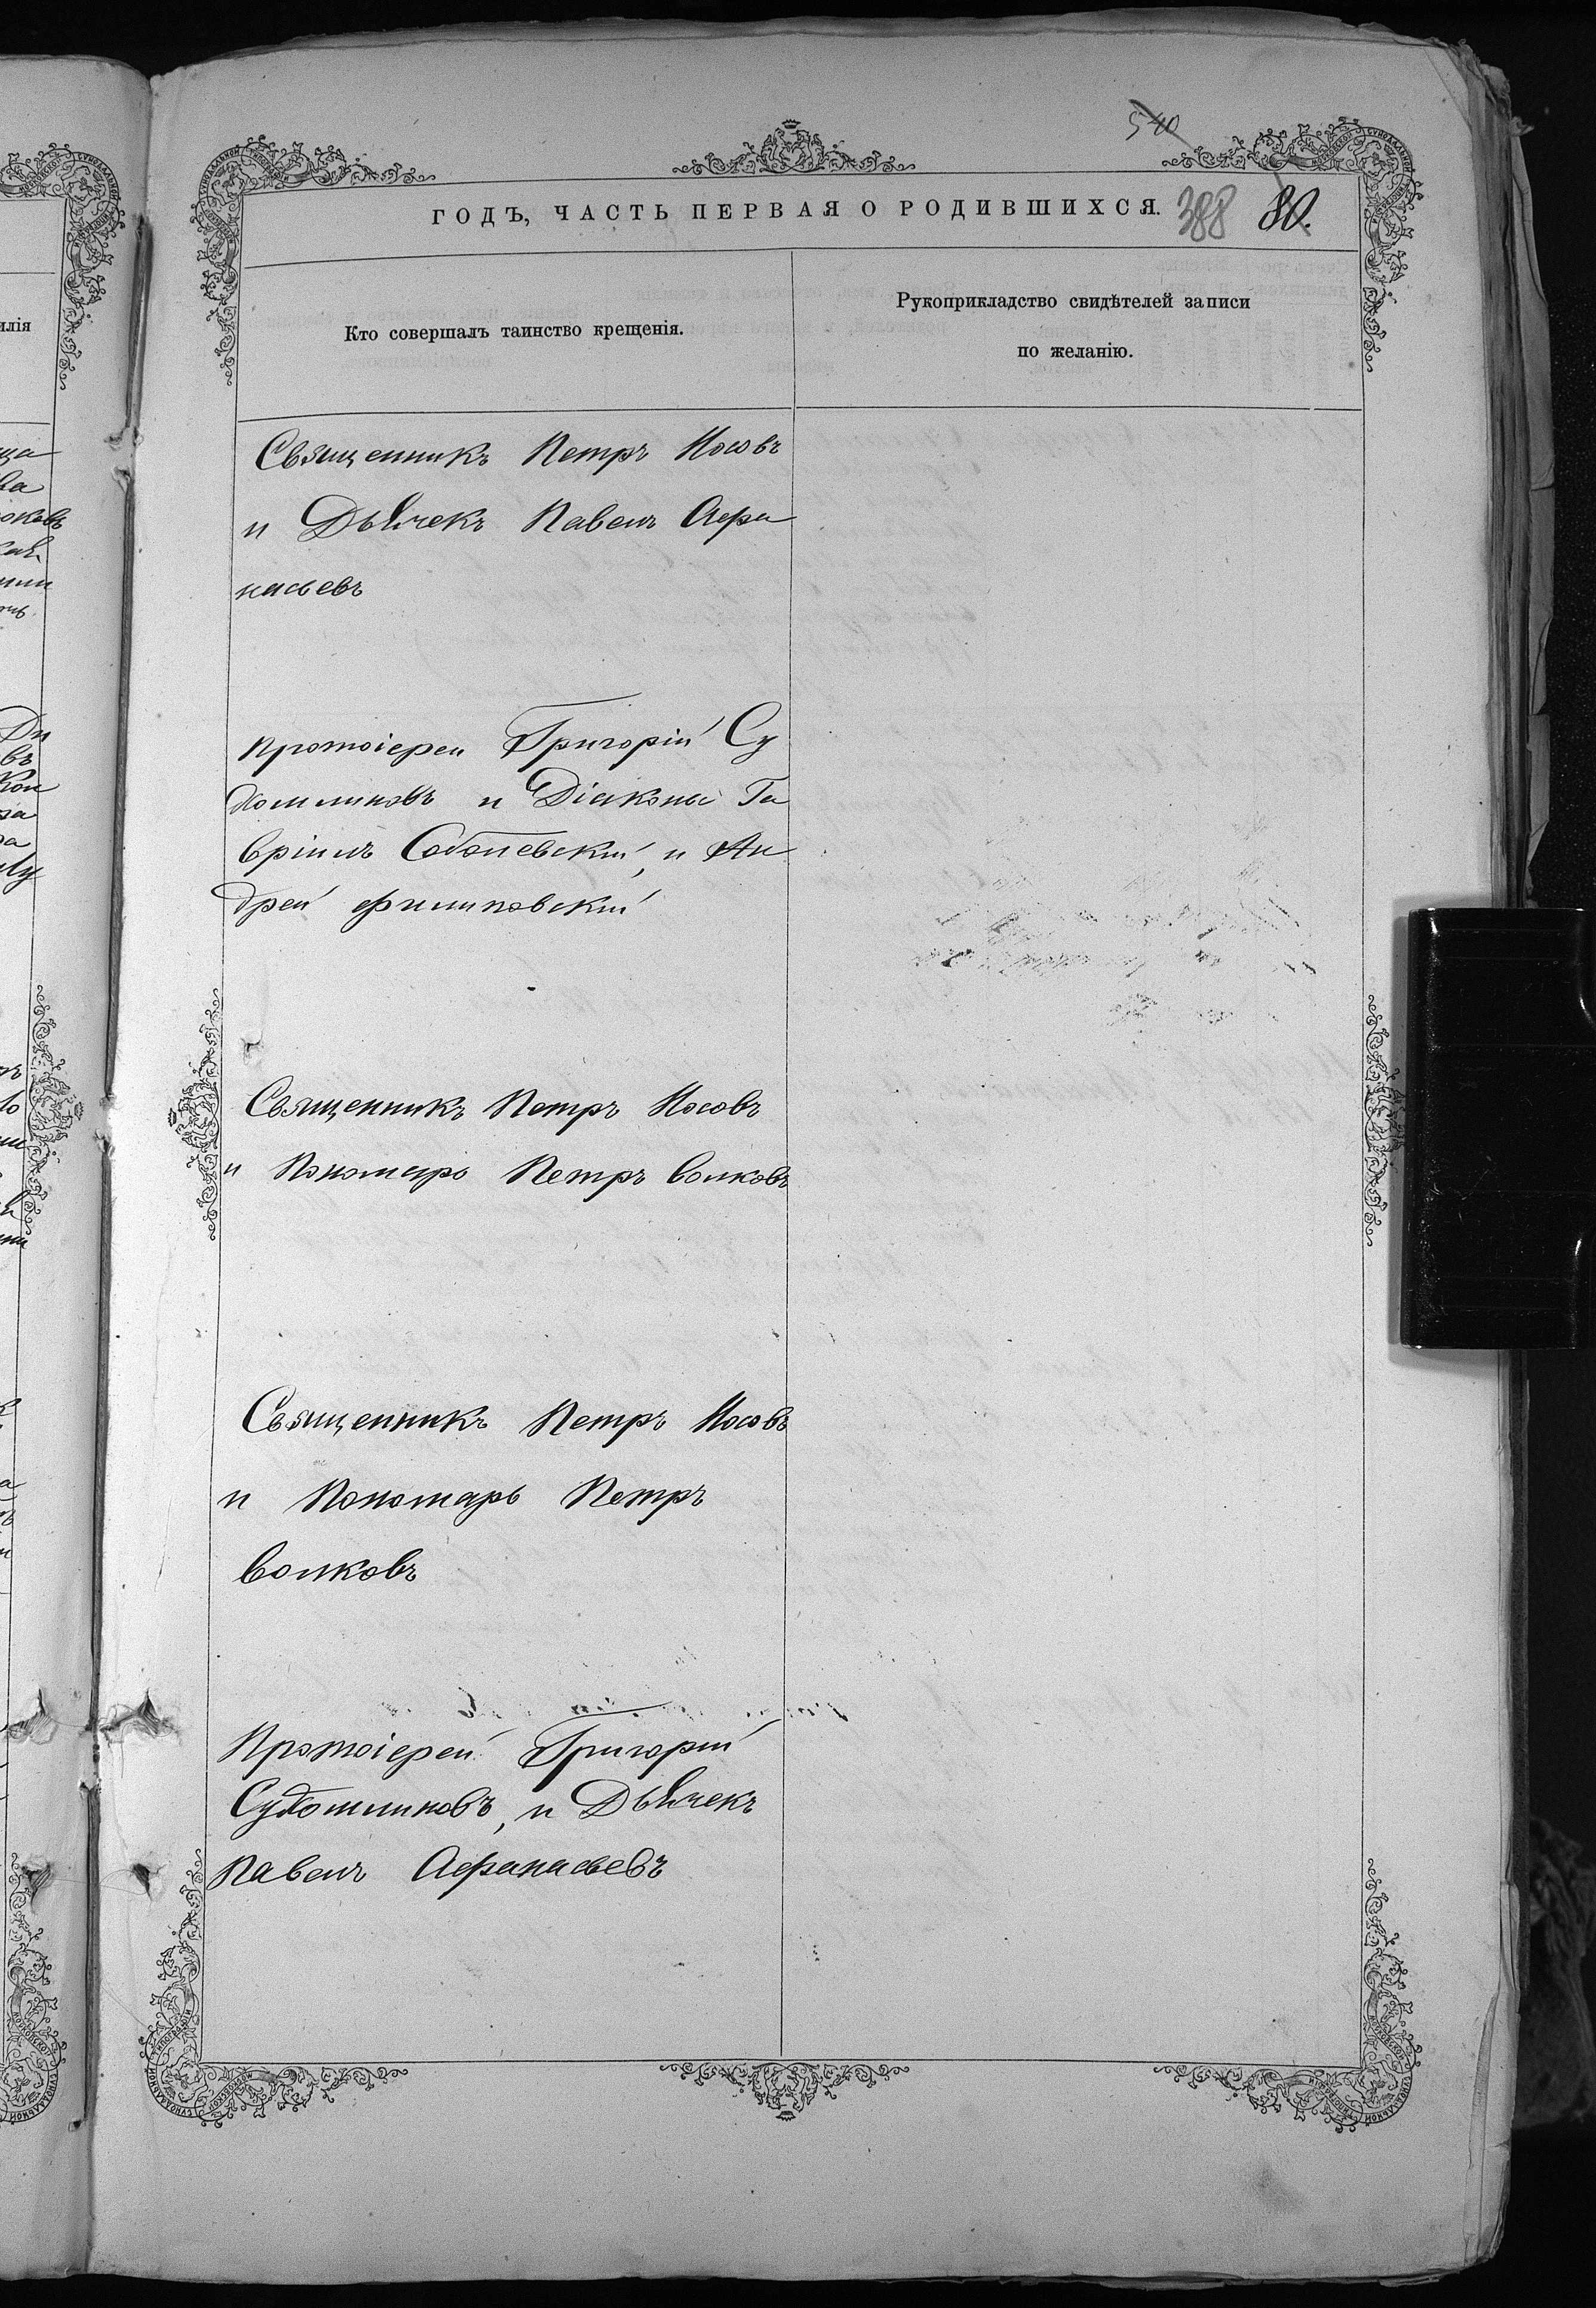 540
ГОДЪ, ЧАСТЬ ПЕРВАЯ О РОДИВШИХСЯ. 388 80.
Кто совершалъ таинство крещенія.
Рукоприкладство свидѣтелей записи
по желанію.
Священникъ Петръ Носовъ
и Дьячекъ Павелъ Афа
насьевъ
Протоіереи Григорій Су
хомлиновъ и Діаконы Га
вріилъ Соболевскій, и Ан
дрей Филиповскій
Священникъ Петръ Носовъ
и Пономарь Петръ Волковъ
Священникъ Петръ Носовъ
и Пономарь Петръ
Волковъ
Протоіерей Григорій
Сухомлиновъ, и Дьячекъ
Павелъ Афанасьевъ